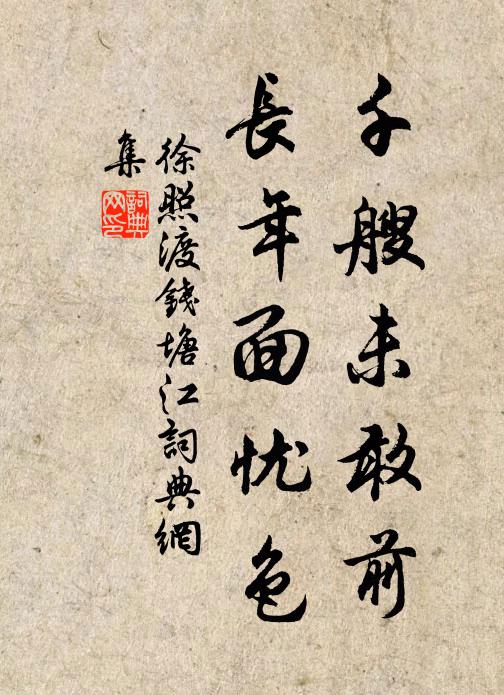 千艘未敢前
長年面忧色
徐照渡錢塘江詞典網
集
詞典
网印